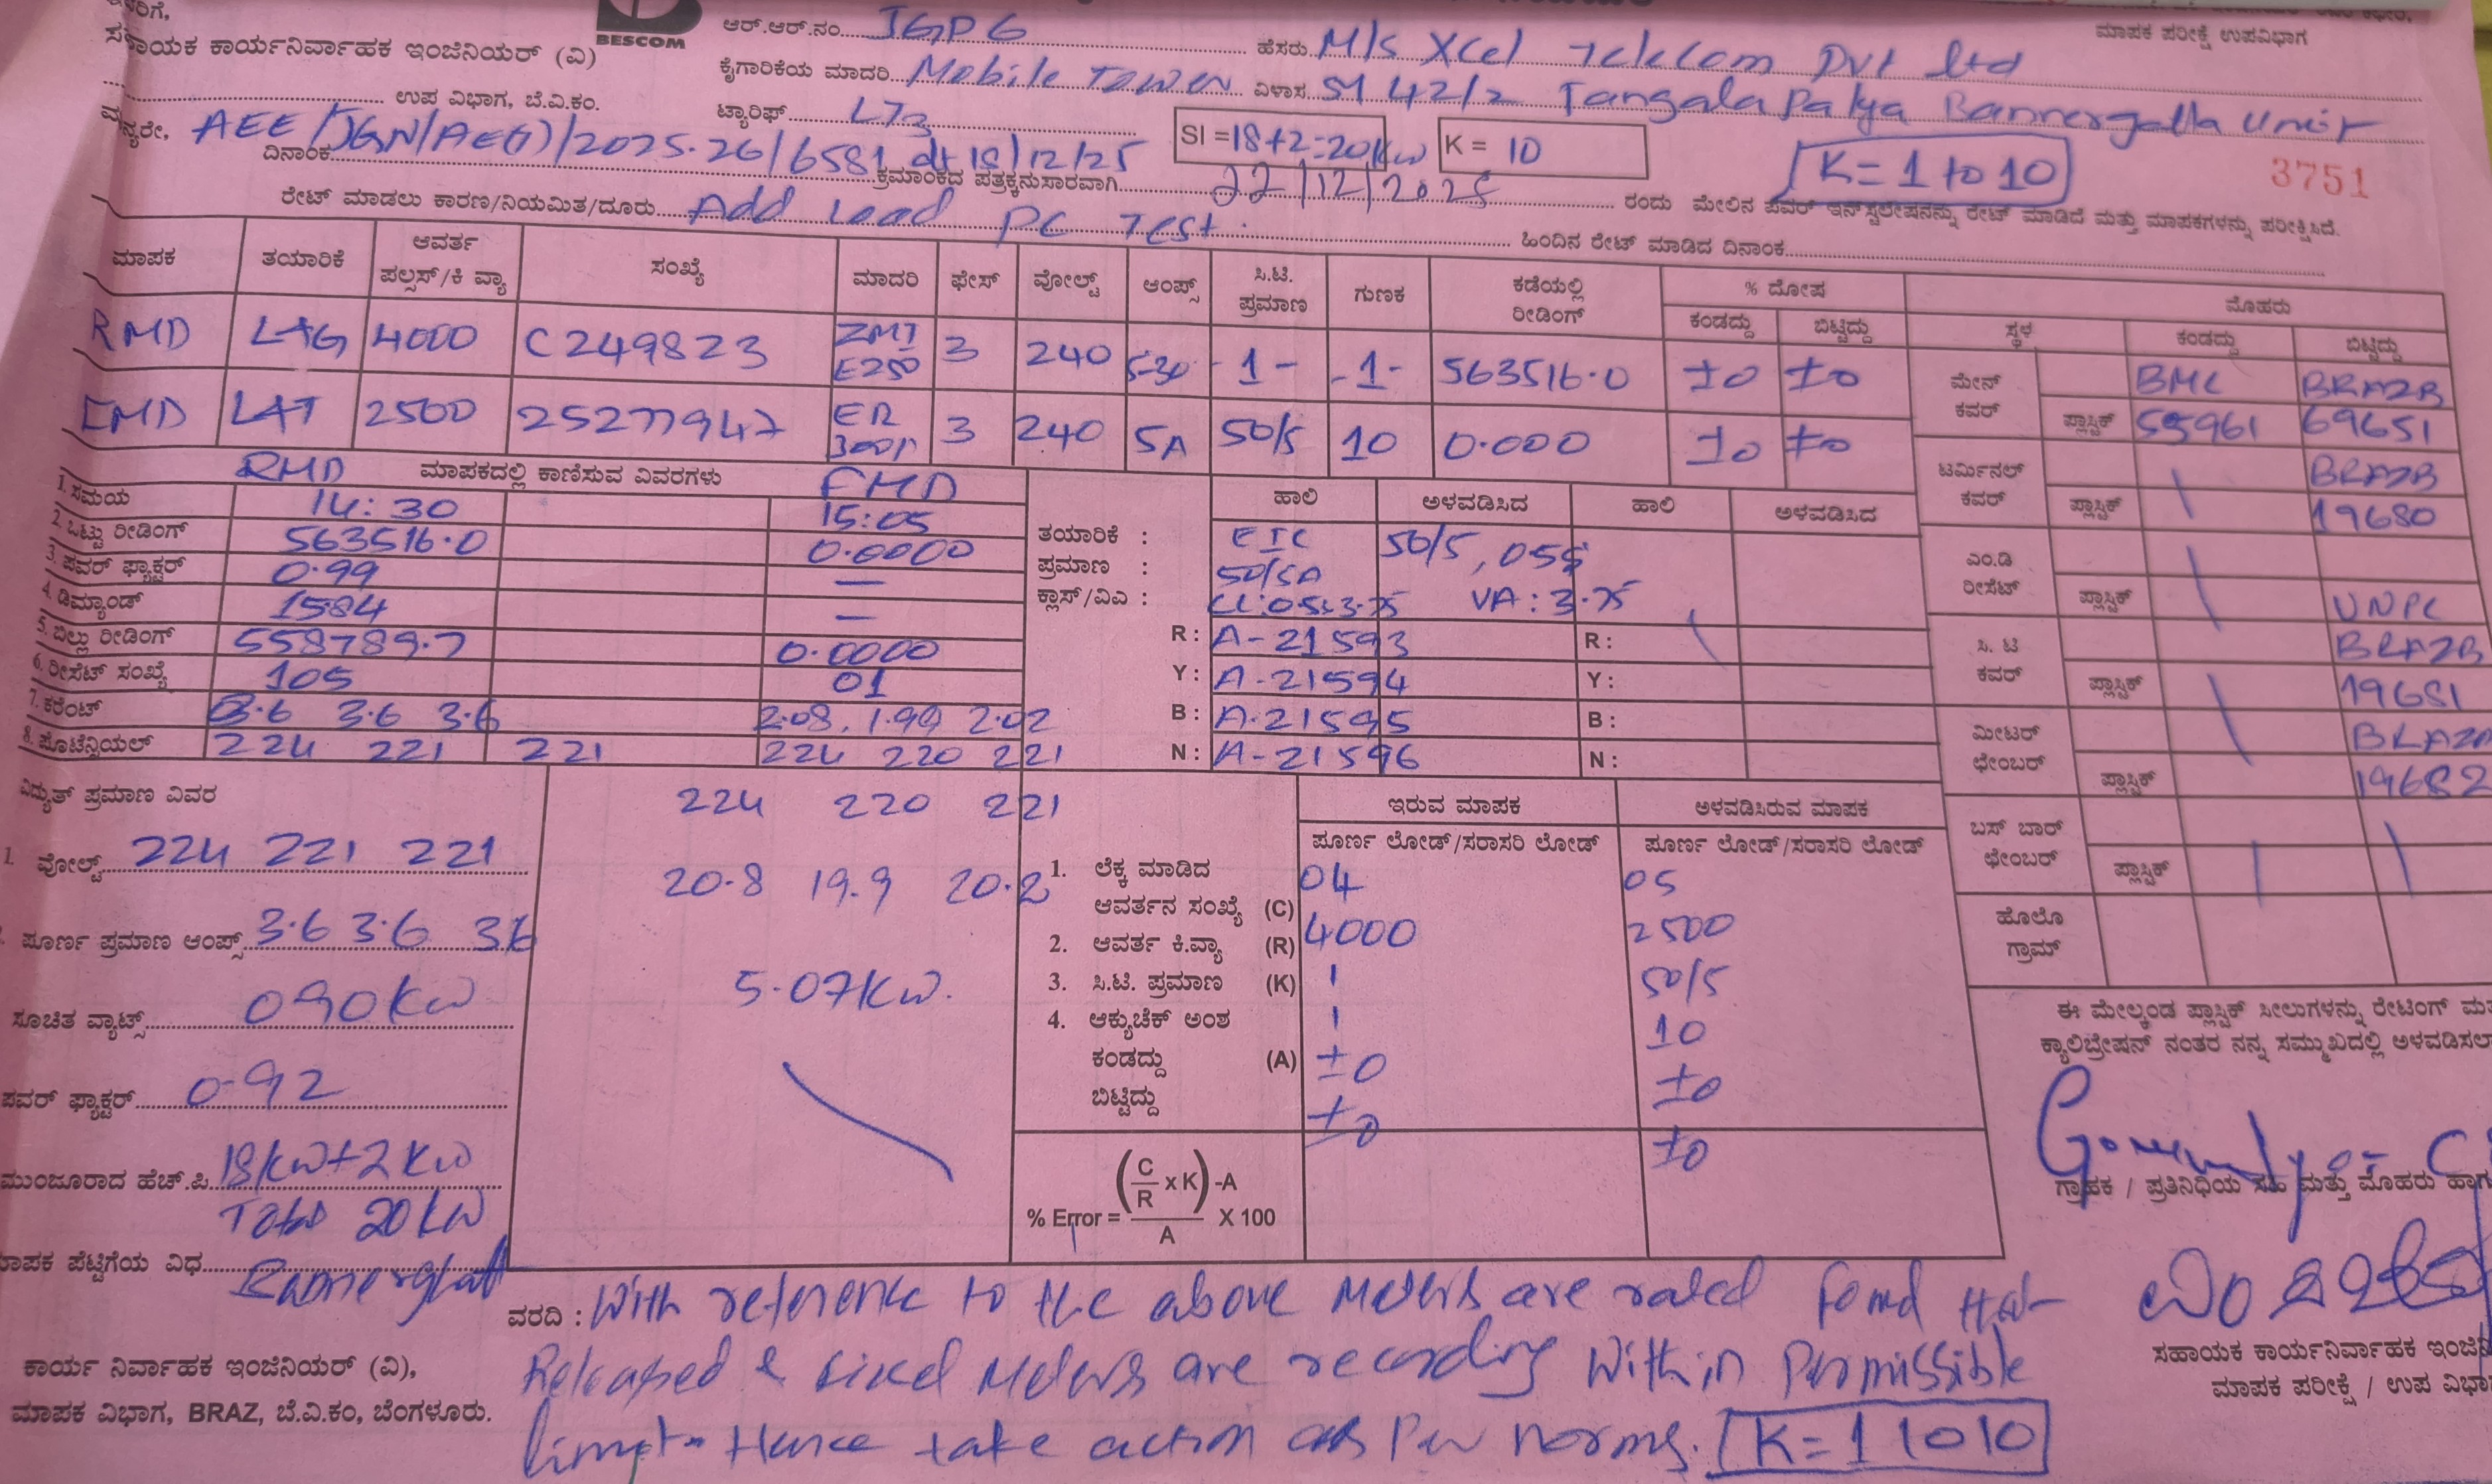 ಸಹಾಯಕ ಕಾರ್ಯನಿರ್ವಾಹಕ ಇಂಜಿನಿಯರ್ (ವಿ)
ಉಪ ವಿಭಾಗ, ಬೆ.ವಿ.ಕಂ.
BESCOM
ಆರ್.ಆರ್.ನಂ. JGP6
ಹೆಸರು M/s Xcel Telecom Pvt ltd
ಮಾಪಕ ಪರೀಕ್ಷೆ ಉಪವಿಭಾಗ
ಕೈಗಾರಿಕೆಯ ಮಾದರಿ Mobile Tower
ವಿಳಾಸ SY 42/2 Jangala Palya Bannergatta Unit
ಟ್ಯಾರಿಫ್ LT3
SI = 18+2=20KW
K = 10
K = 1 to 10
3751
ದಿನಾಂಕ AEE/JGN/AE(T)/2025-26/6581 dt 18/12/25 ಕ್ರಮಾಂಕದ ಪತ್ರಕ್ಕನುಸಾರವಾಗಿ 22/12/2025 ರಂದು ಮೇಲಿನ ಪವರ್ ಇನ್‌ಸ್ಟಲೇಷನನ್ನು ರೇಟ್ ಮಾಡಿದೆ ಮತ್ತು ಮಾಪಕಗಳನ್ನು ಪರೀಕ್ಷಿಸಿದೆ.
ರೇಟ್ ಮಾಡಲು ಕಾರಣ/ನಿಯಮಿತ/ದೂರು Add Load PC Test.
ಹಿಂದಿನ ರೇಟ್ ಮಾಡಿದ ದಿನಾಂಕ
ಮಾಪಕ ತಯಾರಿಕೆ ಆವರ್ತ ಪಲ್ಸಸ್/ಕಿ ವ್ಯಾ ಸಂಖ್ಯೆ ಮಾದರಿ ಫೇಸ್ ವೋಲ್ಟ್ ಆಂಪ್ಸ್ ಸಿ.ಟಿ. ಪ್ರಮಾಣ ಗುಣಕ ಕಡೆಯಲ್ಲಿ ರೀಡಿಂಗ್ % ದೋಷ ಕಂಡದ್ದು ಬಿಟ್ಟಿದ್ದು
RMD L+G 4000 C249823 ZMT E250 3 240 5-30 -1- -1- 563516.0 ±0 ±0
FMD L&T 2500 25277947 ER 300P 3 240 5A 50/5 10 0.000 ±0 ±0
ಮೊಹರು
ಸ್ಥಳ ಕಂಡದ್ದು ಬಿಟ್ಟಿದ್ದು
ಮೇನ್ ಕವರ್ BMC BRAZB
ಪ್ಲಾಸ್ಟಿಕ್ 55961 69651
ಟರ್ಮಿನಲ್ ಕವರ್ BRAZB
ಪ್ಲಾಸ್ಟಿಕ್ 19680
ಎಂ.ಡಿ ರೀಸೆಟ್
ಪ್ಲಾಸ್ಟಿಕ್ UNPL
ಸಿ. ಟಿ ಕವರ್ BRAZB
ಪ್ಲಾಸ್ಟಿಕ್ 19681
ಮೀಟರ್ ಛೇಂಬರ್
ಪ್ಲಾಸ್ಟಿಕ್ 19682
ಬಸ್ ಬಾರ್ ಛೇಂಬರ್
ಪ್ಲಾಸ್ಟಿಕ್
ಹೊಲೊ ಗ್ರಾಮ್
RMD ಮಾಪಕದಲ್ಲಿ ಕಾಣಿಸುವ ವಿವರಗಳು FMD
1. ಸಮಯ 14:30 15:05
2. ಒಟ್ಟು ರೀಡಿಂಗ್ 563516.0 0.0000
3. ಪವರ್ ಫ್ಯಾಕ್ಟರ್ 0.99 —
4. ಡಿಮ್ಯಾಂಡ್ 1584 —
5. ಬಿಲ್ಲು ರೀಡಿಂಗ್ 558789.7 0.0000
6. ರೀಸೆಟ್ ಸಂಖ್ಯೆ 105 01
7. ಕರೆಂಟ್ 3.6 3.6 3.6 2.08, 1.99 2.02
8. ಪೊಟೆನ್ಷಿಯಲ್ 224 221 221 224 220 221
ಹಾಲಿ ಅಳವಡಿಸಿದ ಹಾಲಿ ಅಳವಡಿಸಿದ
ತಯಾರಿಕೆ : EIC
ಪ್ರಮಾಣ : 50/5A 50/5,
ಕ್ಲಾಸ್/ವಿಎ : VA : 3.75
R : A-21593 R :
Y : A-21594 Y :
B : A-21595 B :
N : A-21596 N :
ವಿದ್ಯುತ್ ಪ್ರಮಾಣ ವಿವರ
1. ವೋಲ್ಟ್ 224 221 221 224 220 221
ಪೂರ್ಣ ಪ್ರಮಾಣ ಆಂಪ್ಸ್ 3.6 3.6 3.6 20.8 19.9 20.2
ಸೂಚಿತ ವ್ಯಾಟ್ಸ್ 090KW 5.07KW.
ಪವರ್ ಫ್ಯಾಕ್ಟರ್ 0.92
ಮುಂಜೂರಾದ ಹೆಚ್.ಪಿ. 18KW+2KW
Total 20KW
ಮಾಪಕ ಪೆಟ್ಟಿಗೆಯ ವಿಧ
ಇರುವ ಮಾಪಕ ಅಳವಡಿಸಿರುವ ಮಾಪಕ
ಪೂರ್ಣ ಲೋಡ್/ಸರಾಸರಿ ಲೋಡ್ ಪೂರ್ಣ ಲೋಡ್/ಸರಾಸರಿ ಲೋಡ್
1. ಲೆಕ್ಕ ಮಾಡಿದ ಆವರ್ತನ ಸಂಖ್ಯೆ (C) 04 05
2. ಆವರ್ತ ಕಿ.ವ್ಯಾ (R) 4000 2500
3. ಸಿ.ಟಿ. ಪ್ರಮಾಣ (K) 1 50/5
4. ಆಕ್ಯುಚೆಕ್ ಅಂಶ 1 10
ಕಂಡದ್ದು (A) ±0 ±0
ಬಿಟ್ಟಿದ್ದು ±0 ±0
% Error = (C/R x K) -A / A X 100
ಈ ಮೇಲ್ಕಂಡ ಪ್ಲಾಸ್ಟಿಕ್ ಸೀಲುಗಳನ್ನು ರೇಟಿಂಗ್
ಕ್ಯಾಲಿಬ್ರೇಷನ್ ನಂತರ ನನ್ನ ಸಮ್ಮುಖದಲ್ಲಿ
ಗ್ರಾಹಕ / ಪ್ರತಿನಿಧಿಯ ಸಹಿ ಮತ್ತು ಮೊಹರು
ವರದಿ : With reference to the above Meters are rated found that
Released & fixed Meters are recording within Permissible
limit. Hence take action as per norms. K = 1 to 10
ಕಾರ್ಯ ನಿರ್ವಾಹಕ ಇಂಜಿನಿಯರ್ (ವಿ),
ಮಾಪಕ ವಿಭಾಗ, BRAZ, ಬೆ.ವಿ.ಕಂ, ಬೆಂಗಳೂರು.
ಸಹಾಯಕ ಕಾರ್ಯನಿರ್ವಾಹಕ
ಮಾಪಕ ಪರೀಕ್ಷೆ / ಉಪ